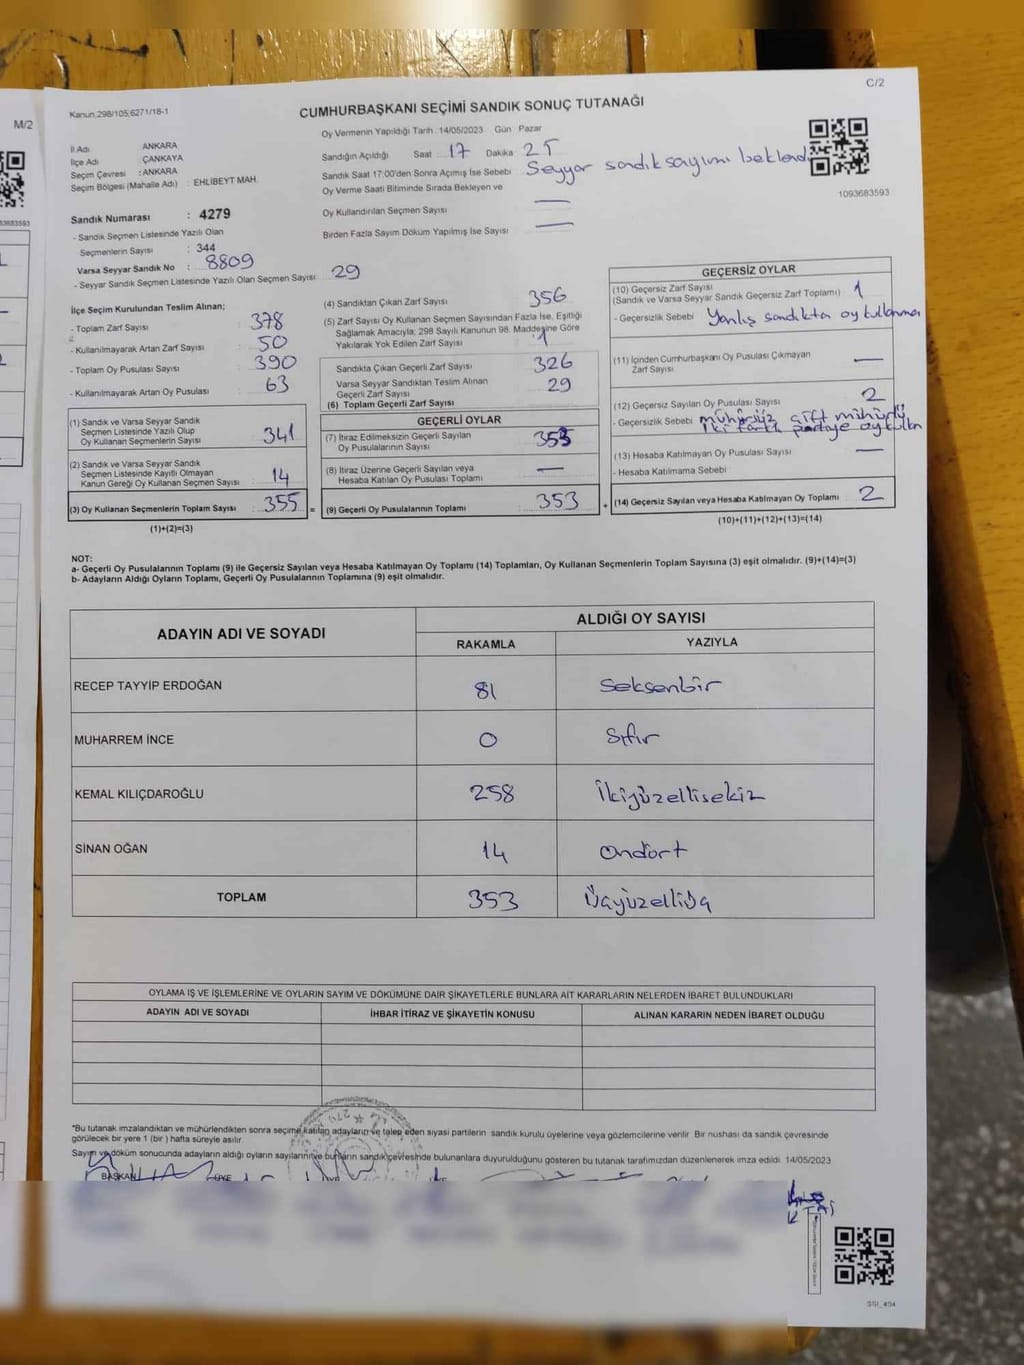 C/2
M/2
Kanun,298/105,6271/18-1
CUMHURBAŞKANI SEÇİMİ SANDIK SONUÇ TUTANAĞI
Oy Vermenin Yapıldığı Tarih :14/05/2023 Gün Pazar
İl Adı ANKARA
İlçe Adı ÇANKAYA
Seçim Çevresi : ANKARA
Seçim Bölgesi (Mahalle Adı) : EHLİBEYT MAH.
Sandığın Açıldığı Saat 17 Dakika 25
Sandık Saat 17:00'den Sonra Açımış İse Sebebi Seyyar sandık sayımı beklendi
Oy Verme Saati Bitiminde Sırada Bekleyen ve
Oy Kullandırılan Seçmen Sayısı —
Birden Fazla Sayım Döküm Yapılmış İse Sayısı —
1093683593
Sandık Numarası : 4279
- Sandık Seçmen Listesinde Yazılı Olan
Seçmenlerin Sayısı : 344
Varsa Seyyar Sandık No : 8809
- Seyyar Sandık Seçmen Listesinde Yazılı Olan Seçmen Sayısı : 29
İlçe Seçim Kurulundan Teslim Alınan;
- Toplam Zarf Sayısı : 378
- Kullanılmayarak Artan Zarf Sayısı : 50
- Toplam Oy Pusulası Sayısı : 390
- Kullanılmayarak Artan Oy Pusulası : 63
(1) Sandık ve Varsa Seyyar Sandık
Seçmen Listesinde Yazılı Olup
Oy Kullanan Seçmenlerin Sayısı : 341
(2) Sandık ve Varsa Seyyar Sandık
Seçmen Listesinde Kayıtlı Olmayan
Kanun Gereği Oy Kullanan Seçmen Sayısı : 14
(3) Oy Kullanan Seçmenlerin Toplam Sayısı : 355 =
(1)+(2)=(3)
(4) Sandıktan Çıkan Zarf Sayısı 356
(5) Zarf Sayısı Oy Kullanan Seçmen Sayısından Fazla İse, Eşitliği
Sağlamak Amacıyla; 298 Sayılı Kanunun 98. Maddesine Göre
Yakılarak Yok Edilen Zarf Sayısı 1
Sandıkta Çıkan Geçerli Zarf Sayısı 326
Varsa Seyyar Sandıktan Teslim Alınan
Geçerli Zarf Sayısı 29
(6) Toplam Geçerli Zarf Sayısı
GEÇERLİ OYLAR
(7) İtiraz Edilmeksizin Geçerli Sayılan
Oy Pusulalarının Sayısı : 353
(8) İtiraz Üzerine Geçerli Sayılan veya
Hesaba Katılan Oy Pusulası Toplamı —
(9) Geçerli Oy Pusulalarının Toplamı : 353 +
GEÇERSİZ OYLAR
(10) Geçersiz Zarf Sayısı
(Sandık ve Varsa Seyyar Sandık Geçersiz Zarf Toplamı) 1
- Geçersizlik Sebebi Yanlış sandıkta oy kullanma
(11) İçinden Cumhurbaşkanı Oy Pusulası Çıkmayan
Zarf Sayısı —
(12) Geçersiz Sayılan Oy Pusulası Sayısı 2
- Geçersizlik Sebebi mühürsüz çift mühürlü
İki farklı partiye oy
(13) Hesaba Katılmayan Oy Pusulası Sayısı —
- Hesaba Katılmama Sebebi
(14) Geçersiz Sayılan veya Hesaba Katılmayan Oy Toplamı 2
(10)+(11)+(12)+(13)=(14)
NOT:
a- Geçerli Oy Pusulalarının Toplamı (9) ile Geçersiz Sayılan veya Hesaba Katılmayan Oy Toplamı (14) Toplamları, Oy Kullanan Seçmenlerin Toplam Sayısına (3) eşit olmalıdır. (9)+(14)=(3)
b- Adayların Aldığı Oyların Toplamı, Geçerli Oy Pusulalarının Toplamına (9) eşit olmalıdır.
ADAYIN ADI VE SOYADI
ALDIĞI OY SAYISI
RAKAMLA YAZIYLA
RECEP TAYYİP ERDOĞAN 81 Seksenbir
MUHARREM İNCE 0 Sıfır
KEMAL KILIÇDAROĞLU 258 İkiyüzellisekiz
SİNAN OĞAN 14 Ondört
TOPLAM 353 Üçyüzelliüç
OYLAMA İŞ VE İŞLEMLERİNE VE OYLARIN SAYIM VE DÖKÜMÜNE DAİR ŞİKAYETLERLE BUNLARA AİT KARARLARIN NELERDEN İBARET BULUNDUKLARI
ADAYIN ADI VE SOYADI İHBAR İTİRAZ VE ŞİKAYETİN KONUSU ALINAN KARARIN NEDEN İBARET OLDUĞU
*Bu tutanak imzalandıktan ve mühürlendikten sonra seçime katılan adayların ve talep eden siyasi partilerin sandık kurulu üyelerine veya gözlemcilerine verilir. Bir nüshası da sandık çevresinde
görülecek bir yere 1 (bir) hafta süreyle asılır.
Sayım ve döküm sonucunda adayların aldığı oyların sayılarını ve bunların sandık çevresinde bulunanlara duyurulduğunu gösteren bu tutanak tarafımızdan düzenlenerek imza edildi. 14/05/2023
BAŞKAN ÜYE